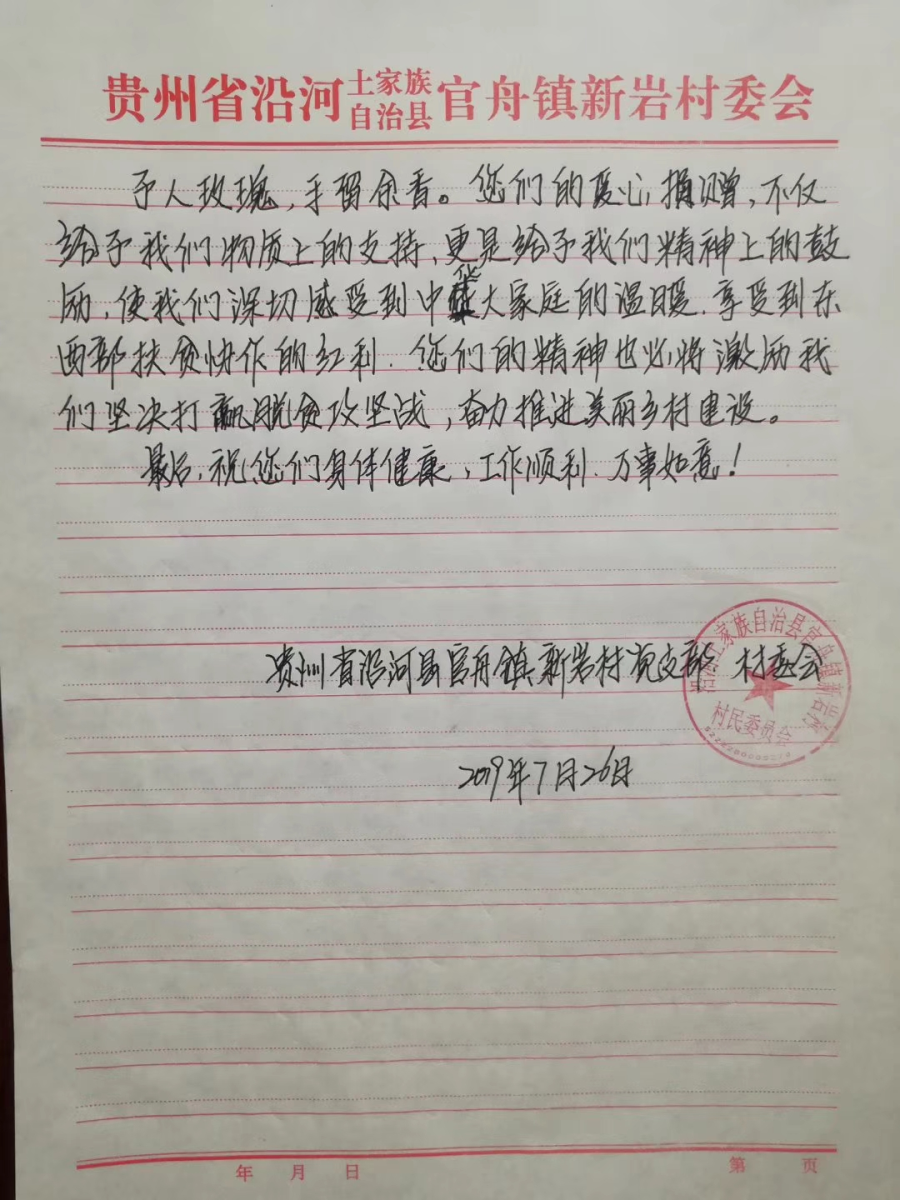 贵州省沿河土家族自治县官舟镇新岩村委会
予人玫瑰，手留余香。您们的爱心捐赠，不仅
给予我们物质上的支持，更是给予我们精神上的鼓
励，使我们深切感受到中华大家庭的温暖，享受到东
西部扶贫快作的红利．您们的精神也必将激励我
们坚决打赢脱贫攻坚战，奋力推进美丽乡村建设。
最后，祝您们身体健康，工作顺利．万事如意！
贵州省沿河县官舟镇新岩村党支部 村委会
沿河土家族自治县官舟镇新岩村
村民委员会
2019年7月26日
年 月 日 第 页